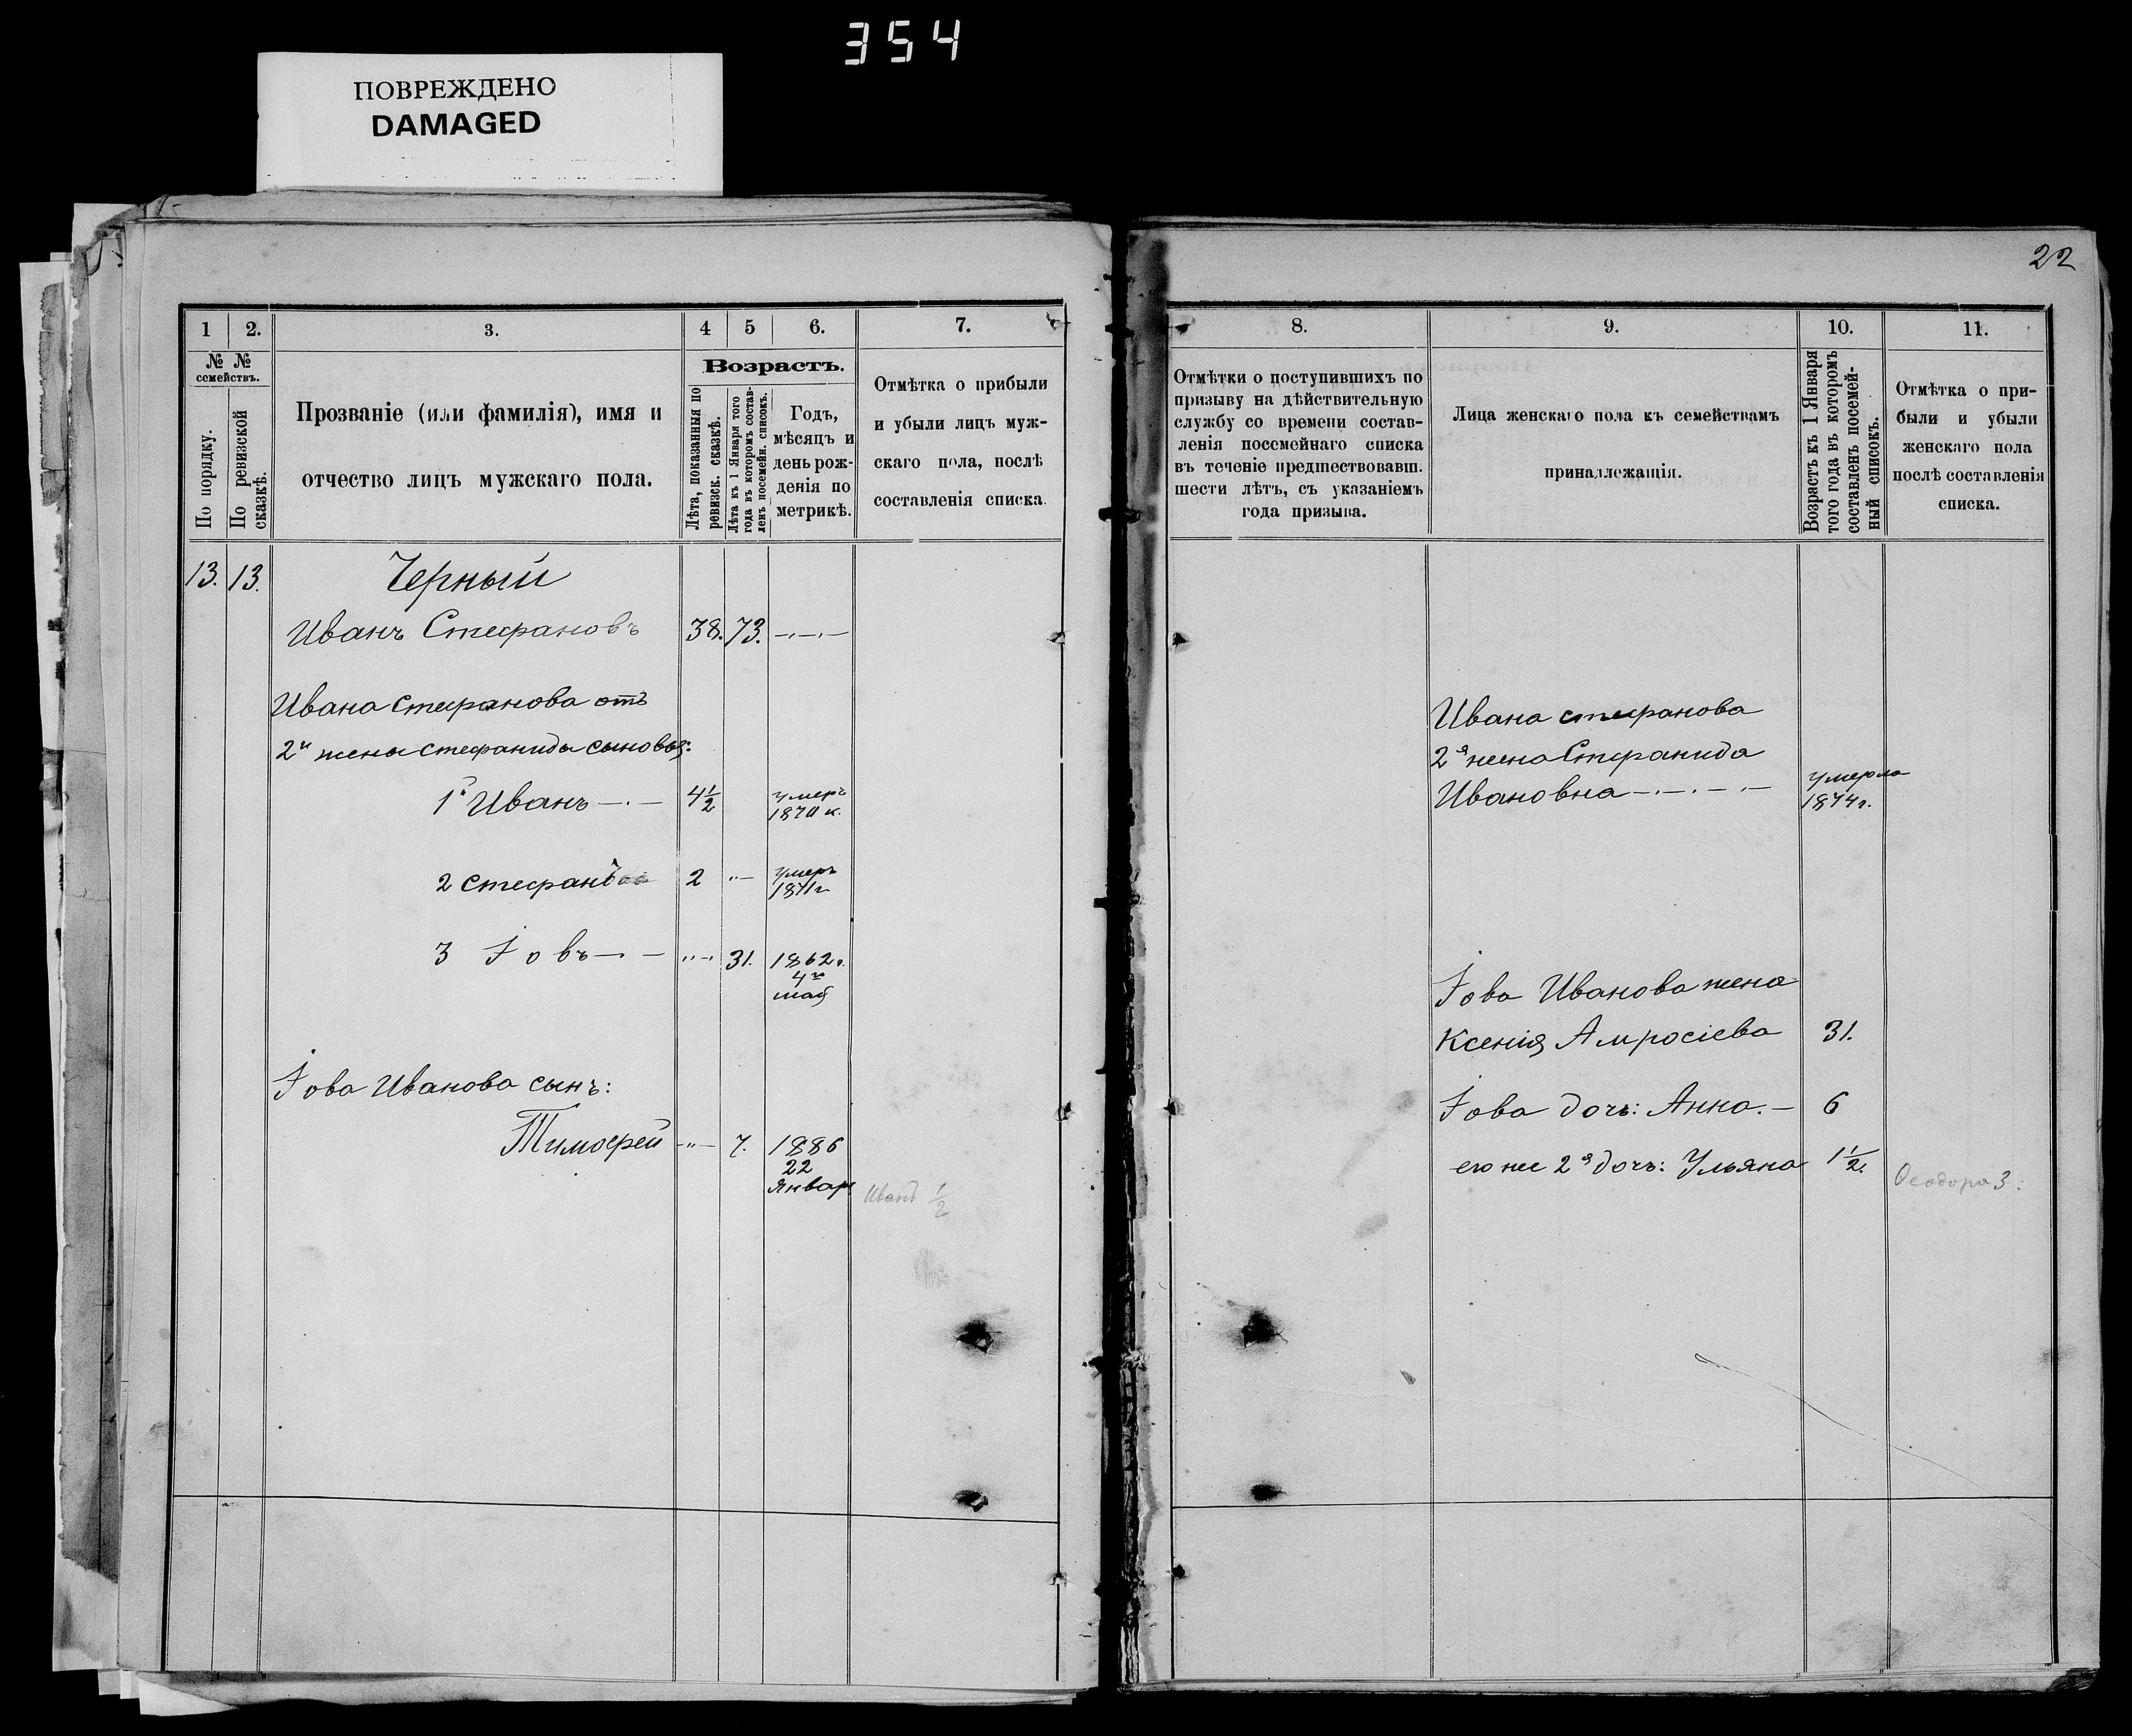 354
ПОВРЕЖДЕНО
DAMAGED
22
1
2.
3.
4
5
6.
7.
№ №
семействъ.
По порядку.
По ревизской
сказкѣ.
Прозваніе (или фамилія), имя и
отчество лицъ мужскаго пола.
Возрастъ.
Лѣта, показанныя по
ревизск. сказкѣ.
Лѣта къ 1 Января того
года въ которомъ состав-
ленъ посемейн. списокъ.
Годъ,
мѣсяцъ и
день рож-
денія по
метрикѣ.
Отмѣтка о прибыли
и убыли лицъ муж-
скаго пола, послѣ
составленія списка.
13. 13.
Черный
Иванъ Стефановъ 38. 73.
Ивана Стефанова отъ
2й жены Стефаниды сыновья:
1й Иванъ 4½ умеръ
2 Стефанъ 2 умеръ
1871г
3 Іовъ 31. 1862г.
4го
мая
Іова Иванова сынъ:
Тимофей 7. 1886
22
Январ
Иванъ ½
8.
9.
10.
11.
Отмѣтки о поступившихъ по
призыву на дѣйствительную
службу со времени состав-
ленія посемейнаго списка
въ теченіе предшествовавш.
шести лѣтъ, съ указаніемъ
года призыва.
Лица женскаго пола къ семействамъ
принадлежащія.
Возрастъ къ 1 Января
того года въ которомъ
составленъ посемей-
ный списокъ.
Отмѣтка о при-
были и убыли
женскаго пола
послѣ составленія
списка.
Ивана Стефанова
2я жена Стефанида
Ивановна умерла
1874г.
Іова Иванова жена
Ксенія Амросіева 31.
Іова дочь: Анна. 6
его же 2я дочь: Ульяна 1½.
Феодора 3: